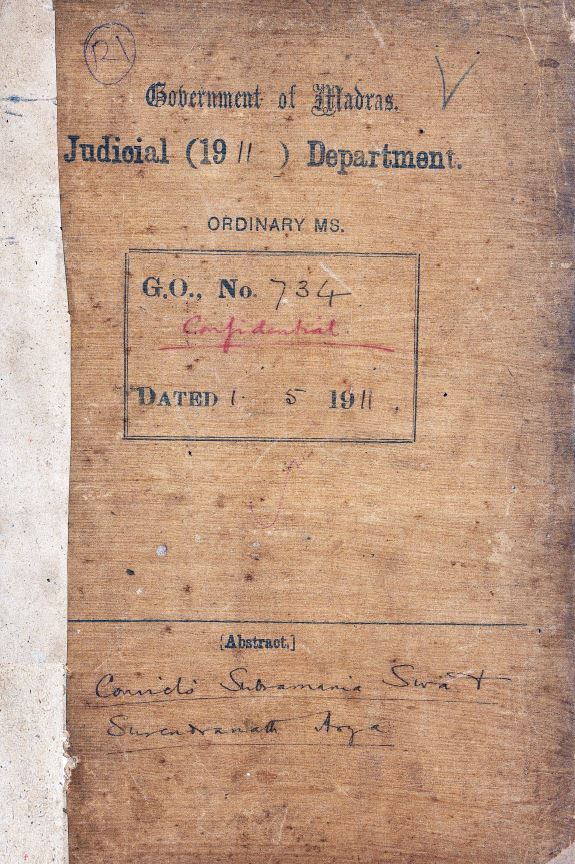 R1
Government of Madras.
Judicial (1911) Department.
ORDINARY MS.
G.O., No. 734
Confidential.
DATED 1 5 1911.
[Abstract.]
Convicts Subramania Siva &
Surendranath Arya